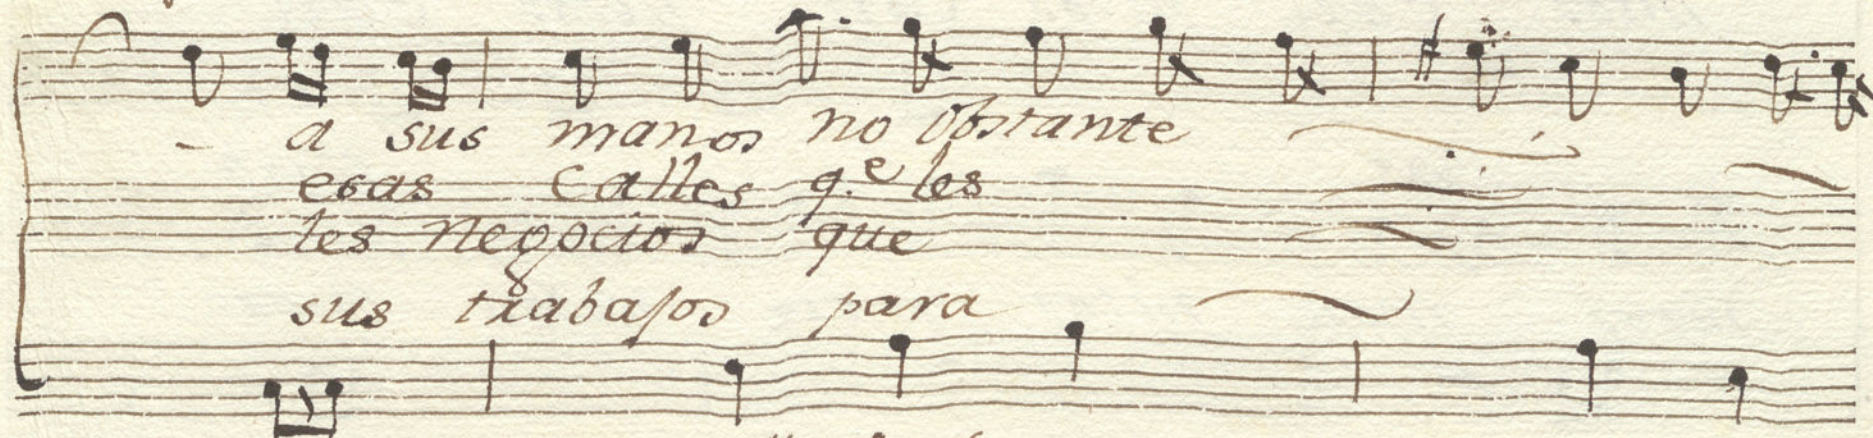 a sus manos no obstante
esas calles q.e les
les negocios que
sus trabajos para